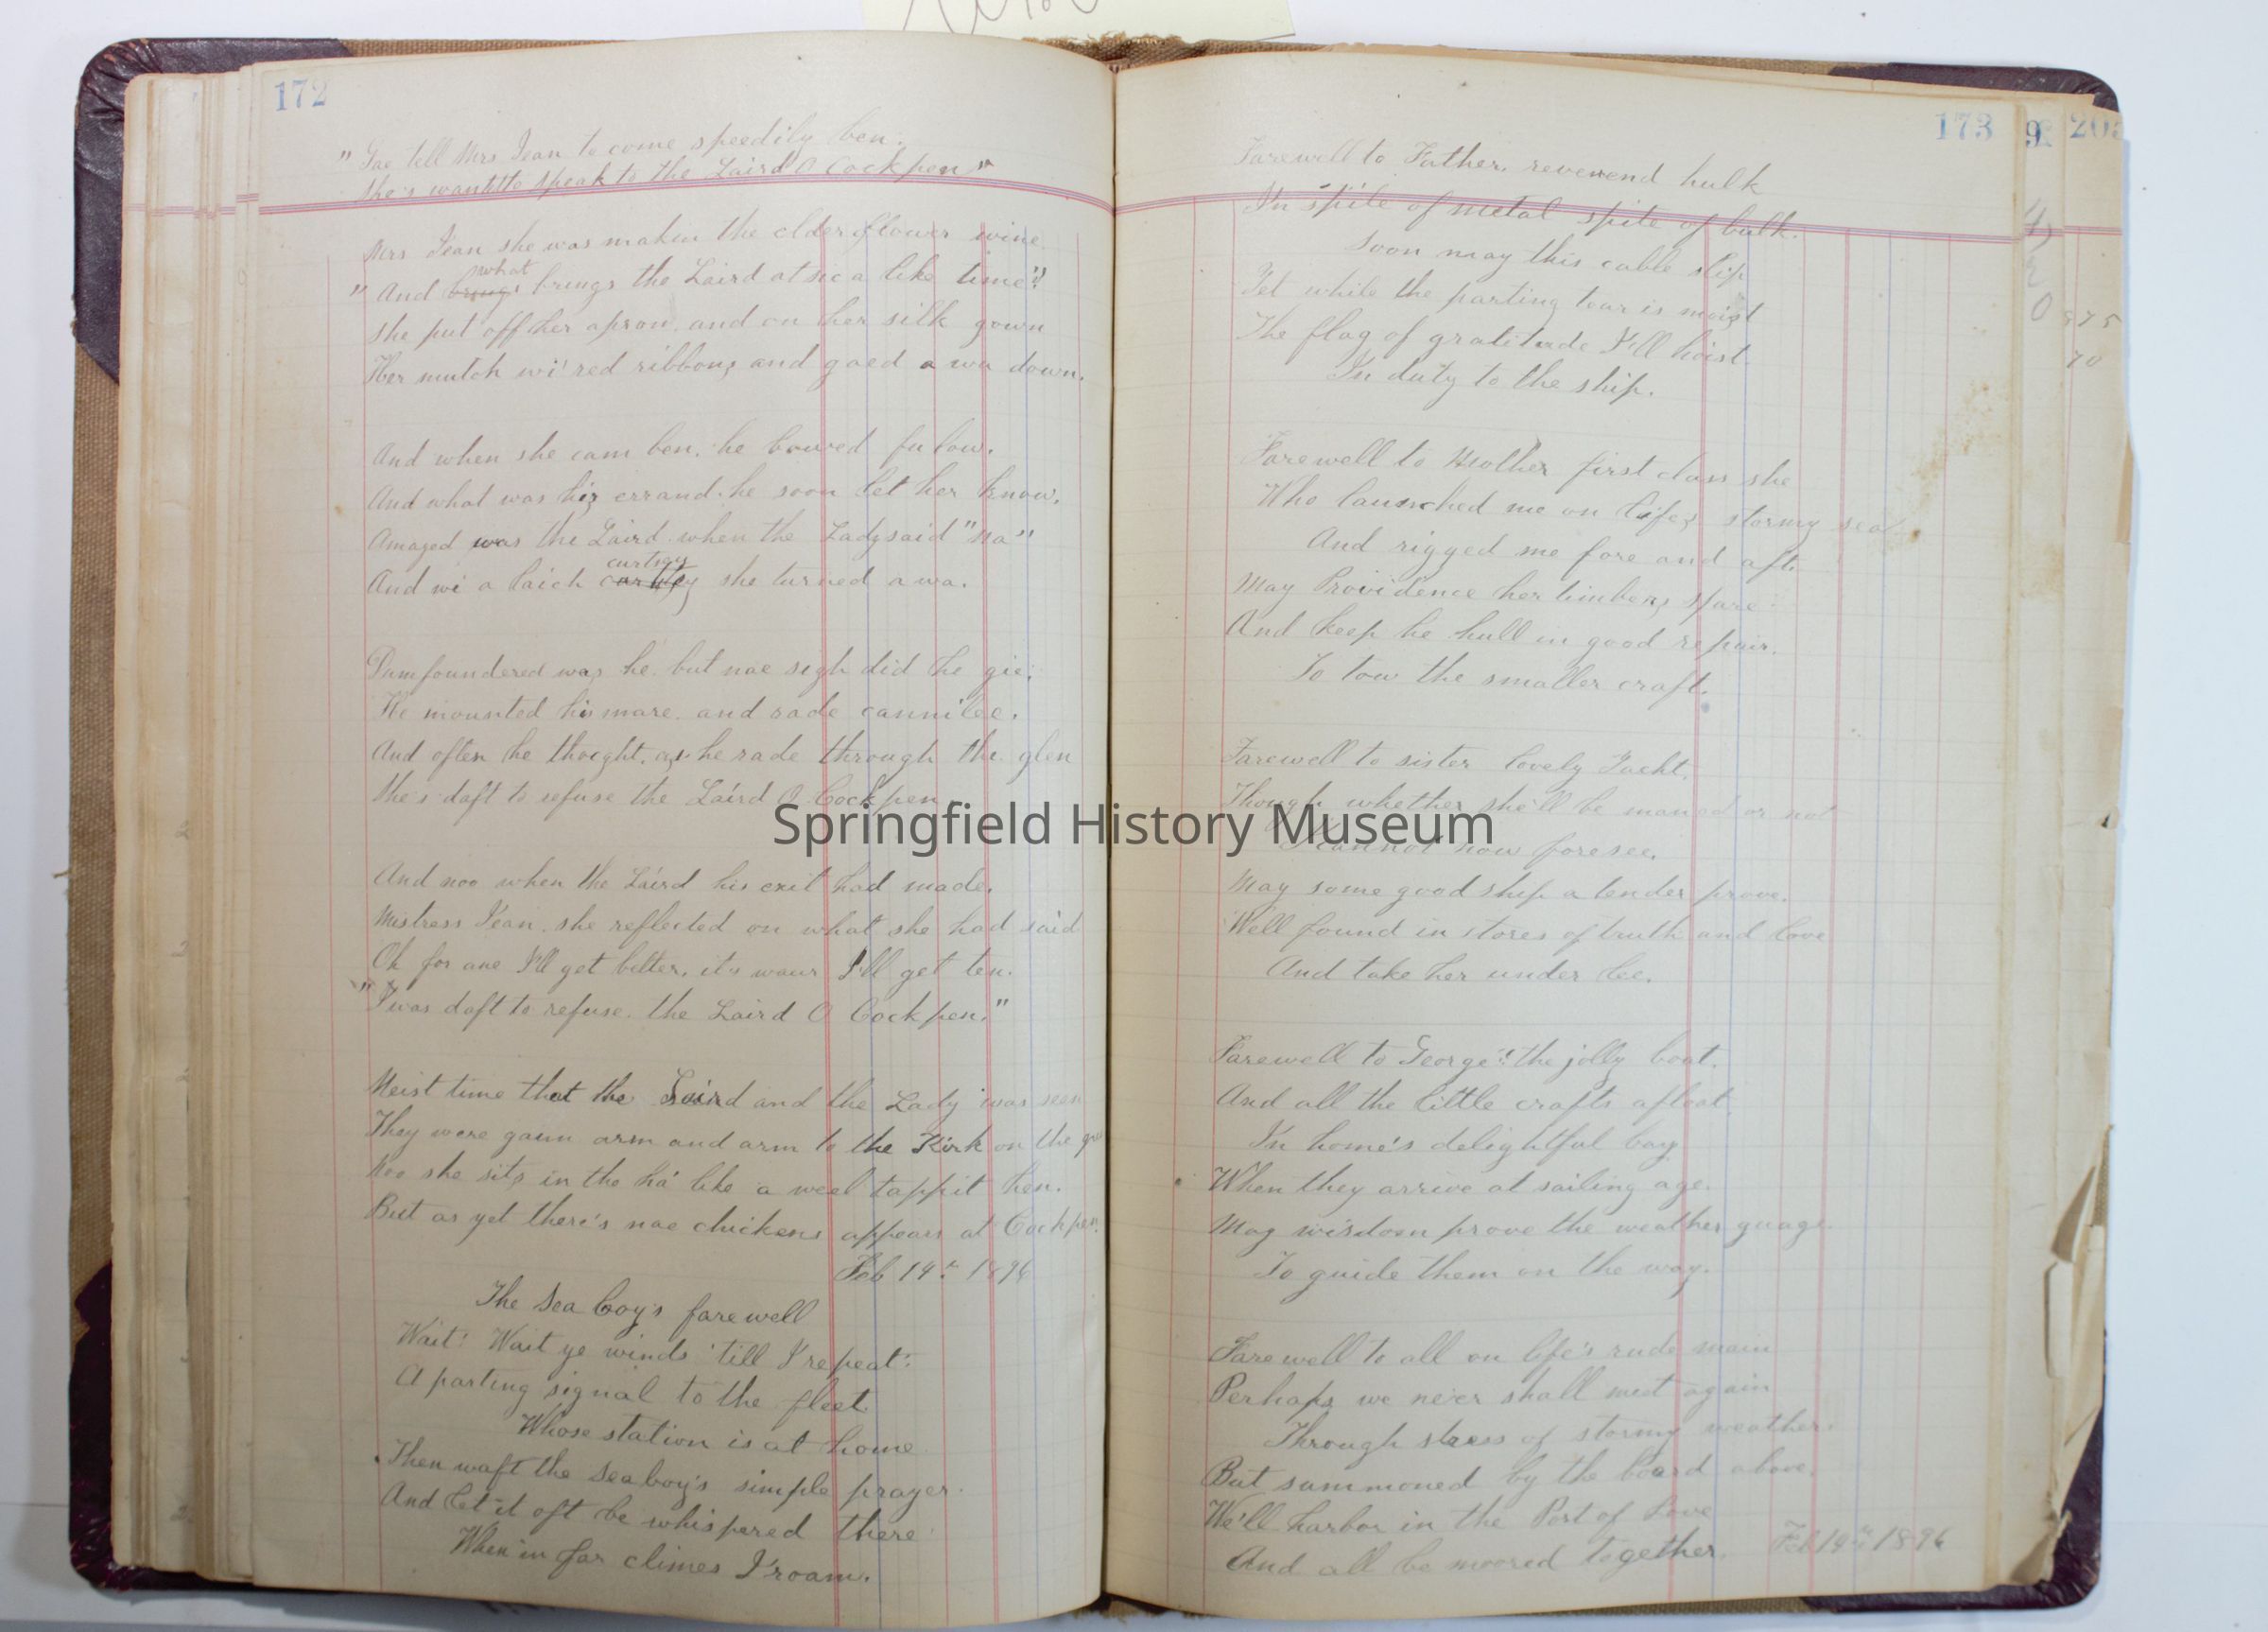 172
" Gae tell Mrs Jean to come speedily ben.
She's wantit to speak to the Laird O Cockpen "
Mrs Jean she was makin the elder flower wine
what
" And brings brings the Laird at sic a like time"?
She put off her apron, and on her silk gown
Her mutch wi' red ribbons and gaed awa down.
And when she cam ben, he bowed fu low.
And what was his errand he soon let her know.
Amazed was the Laird when the Lady said "Na"
curtsey
And wi a laich she turned awa.
Dumfoundered was he but nae sigh did he gie.
He mounted his mare and rade cannilee.
And often he thocght, as he rade through the glen
She's daft to refuse the Laird O Cockpen
And noo when the Laird his exit had made.
Mistress Jean, she reflected on what she had said
Oh for ane I'll get better, its waur I'll get ten.
"I was daft to refuse. the Laird O Cockpen."
Neist time that the Laird and the Lady was seen
They were gaun arm and arm to the Kirk on the
Noo she sits in the ha' like a weel tappit hen.
But as yet there's nae chickens appears at Cockpen.
Feb 14th 1896
The Sea boy's farewell
Wait! Wait ye winds 'till I repeat:
A parting signal to the fleet
Whose station is at home
Then waft the Sea boy's simple prayer.
And let it oft be whispered there
When in far climes I roam.
173
Farewell to Father, reverend hulk
In spite of metal spite of bulk.
Soon may this cable slip
Yet while the parting tear is moist
The flag of gratitude I'll hoist.
In duty to the ship.
Farewell to Mother first class she
Who launched me on life's stormy sea
And rigged me fore and aft.
May Providence her timbers spare
And keep he hull in good repair.
To tow the smaller craft.
Farewell to sister lovely Yacht.
Though whether she'll be maned or not
I cannot now foresee.
May some good ship a tender prove.
Well found in stores of truth and love
And take her under lee.
Farewell to George the jolly boat.
And all the little crafts afloat.
In home's delightful bay
When they arrive at sailing age.
May wisdom prove the weather guage.
To guide them on the way.
Farewell to all on life's rude main
Perhaps we never shall meet again
Through stress of stormy weather.
But summoned by the board above.
We'll harbor in the Port of Love
And all be moored together. Feb 19th 1896
9
20
375
70
Springfield History Museum